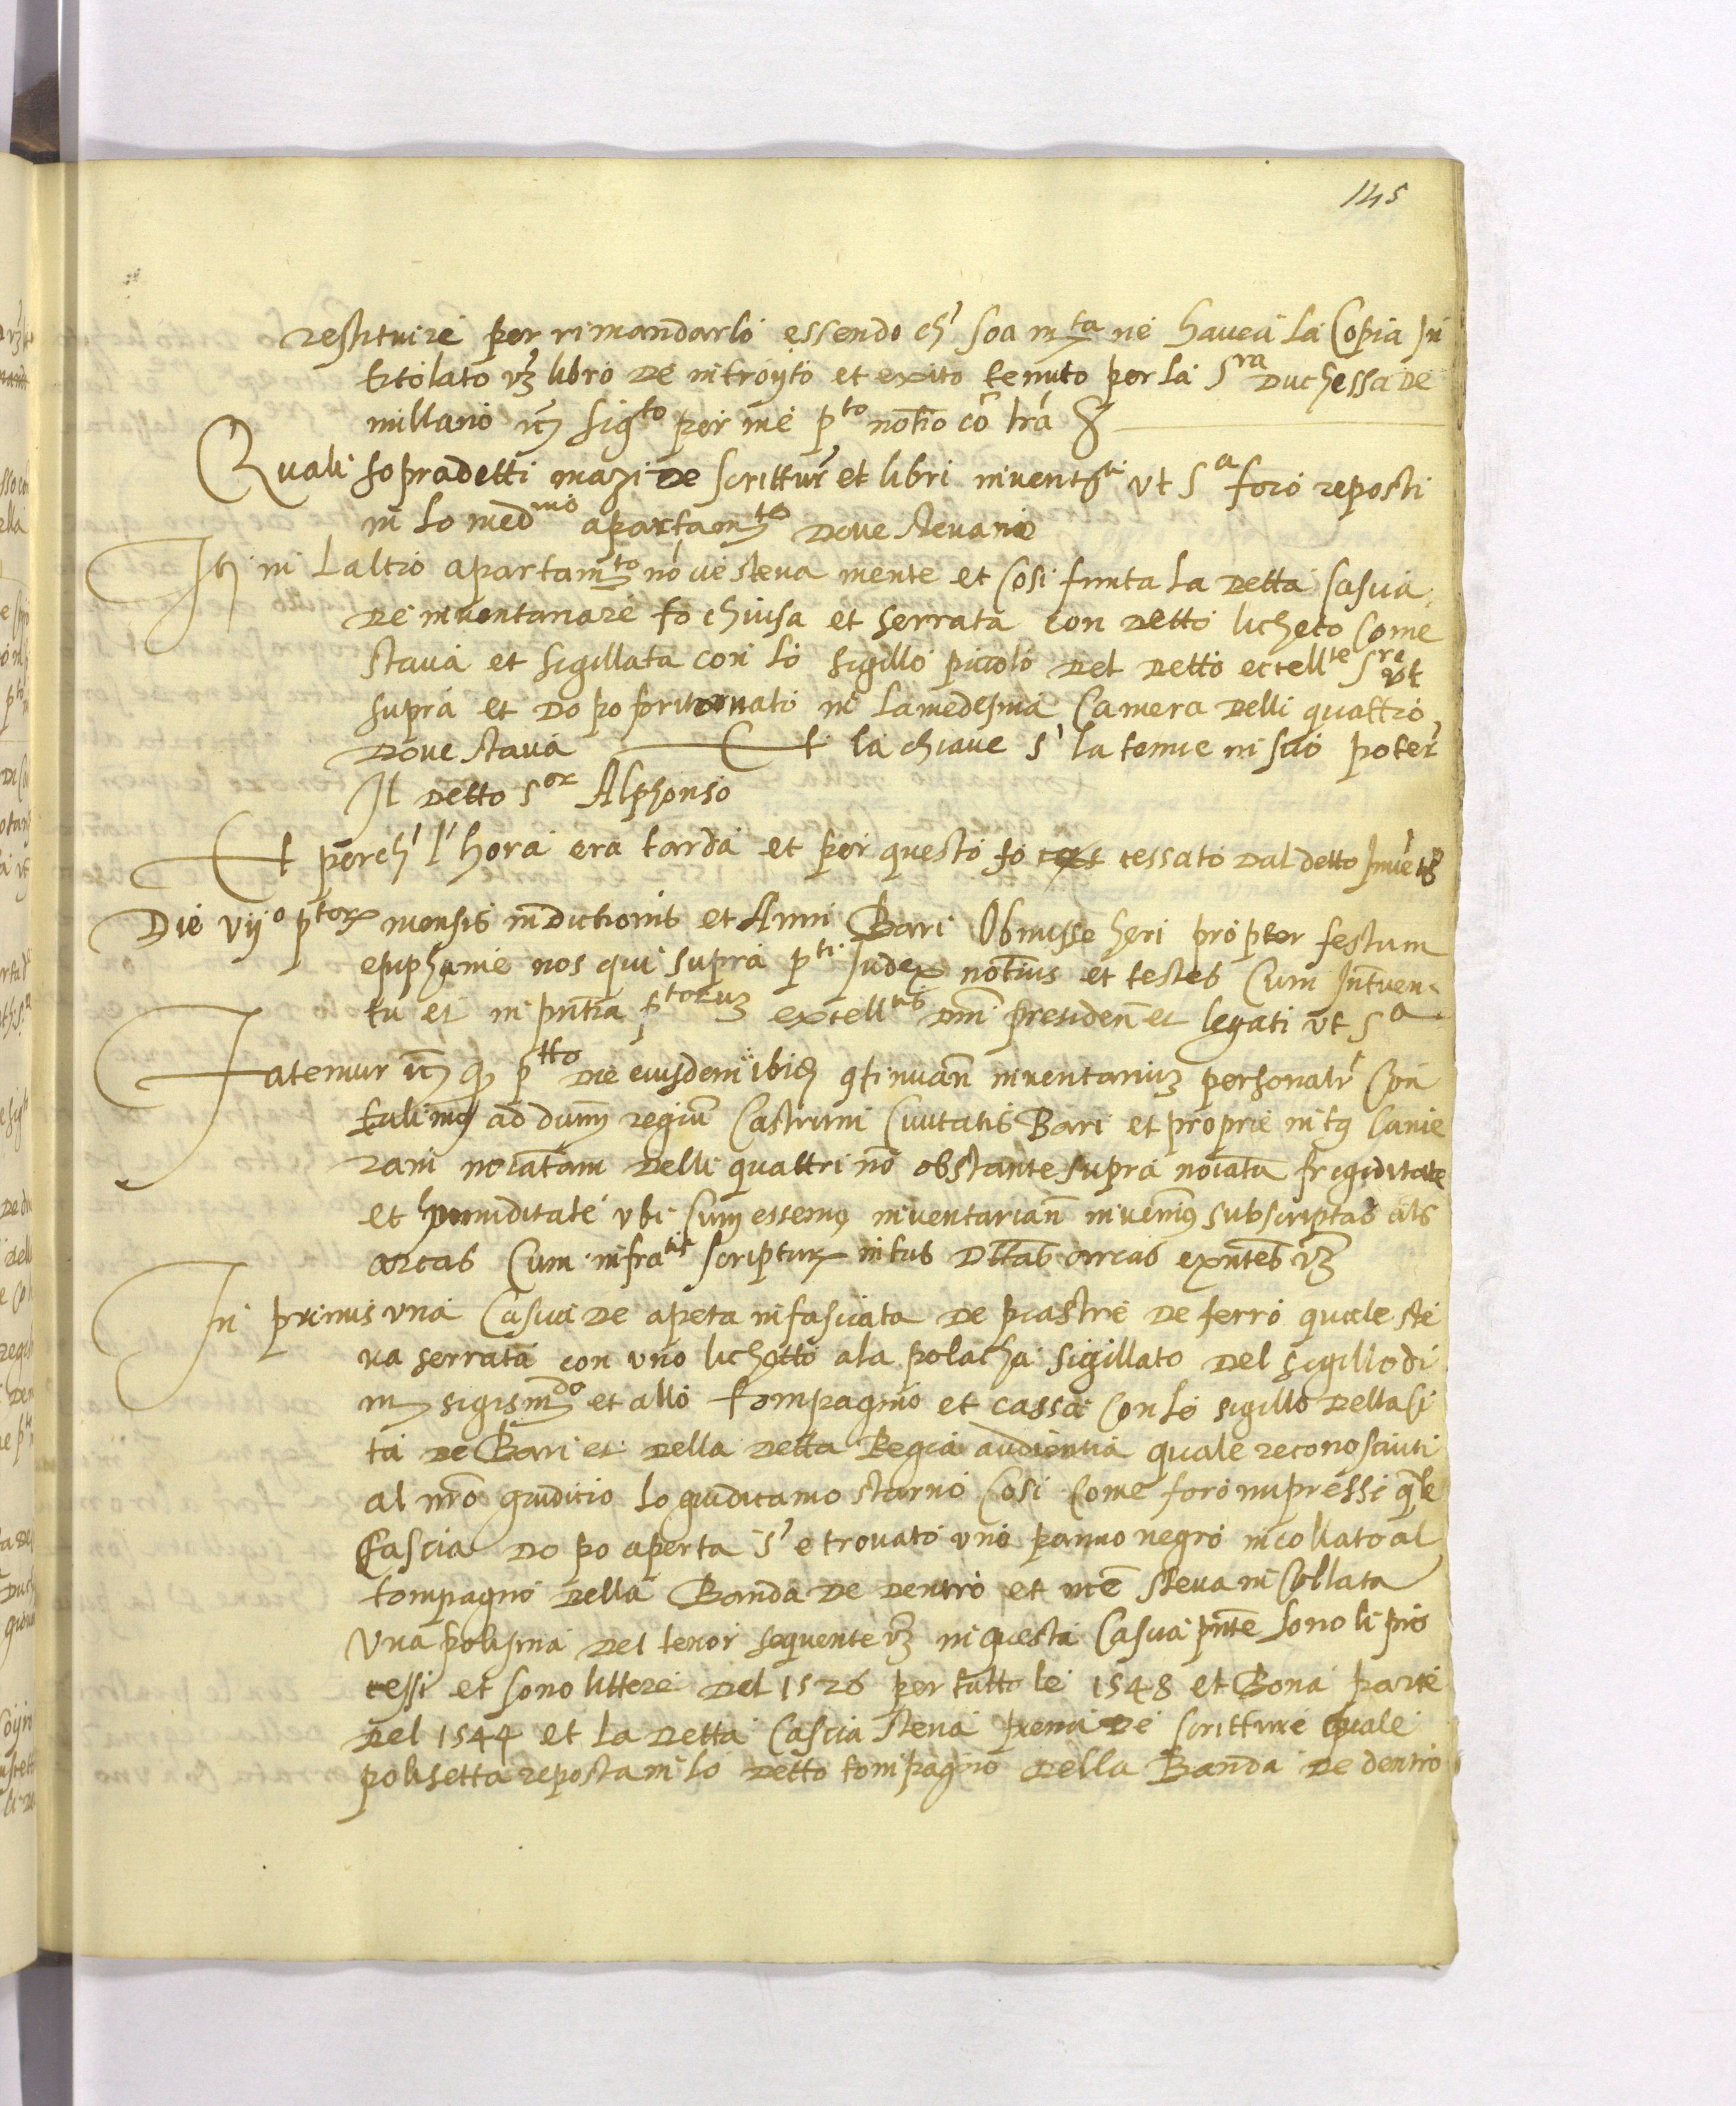 145
restituire per rimandarlo essendo ch' soa mta ne havea la Copia In
titolato vz libro de introyto et exito tenuto per la Sra Duchessa de
millano sigto per me pto notio cō lrā
Quali sopradetti mazi de scrittur' et libri ut sa foro reposti
in lo medmo apartamto dove stevano
Itm in Laltro apartamto nō ve steva niente et Cosi finita la detta Cascia
de inventariare fo chiusa et serrata con detto licheto Come
stava et sigillata con lo sigillo piccolo del detto eccellte Sre ut
supra et dopo fo ritornato in la medesma Camera delli quattro
dove stava Et la chiave s' la tenne in suo poter'
Il detto Sor Alphonso
Et perch' l'hora era tarda et per questo fo cessato dal detto
Die vijo mensis indictionis et Anni Bari Obmisse heri propter festum
epiphanie nos qui supra pti Judex notius et testes Cum Interven
tu et in pntia ptorum excelltis dni presiden et legati ut sa
Fatemur ptto die eiusdem ibid inventarium personalr' Con
tulimus ad regiū Castrum Civitatis Bari et proprie Came
ram noiatam delli quattri nō obstante supra noiata frigiditate
et humiditate ubi Cum essemus inventarian invenimus subscriptas als
arcas Cum infratis scriptur intus dittas arcas exntes vz
In primis una Cascia de apeta infasciata de piastre de ferro quale ste
va serrata con uno lichetto ala polacha sigillato del sigillo di
m sigismdo et allo tompagno et cassa Con lo sigillo della Ci
tà de Bari et della detta Regia audientia quale reconosciuti
al nro giuditio lo giudicamo starno Cosi Come foro impressi qle
Cascia dopo aperta s' e trovato uno panno negro incollato al
tompagno della Banda de dentro et steva in Collata
Una polisina del tenor sequente vz in questa Cascia pnte sono li pro
cessi et sono littere del 1526 per tutto le 1548 et Bona parte
del 1544 et la detta Cascia steva piena de scritture quale
polisetta reposta in lo detto tompagno della Banda de dentro